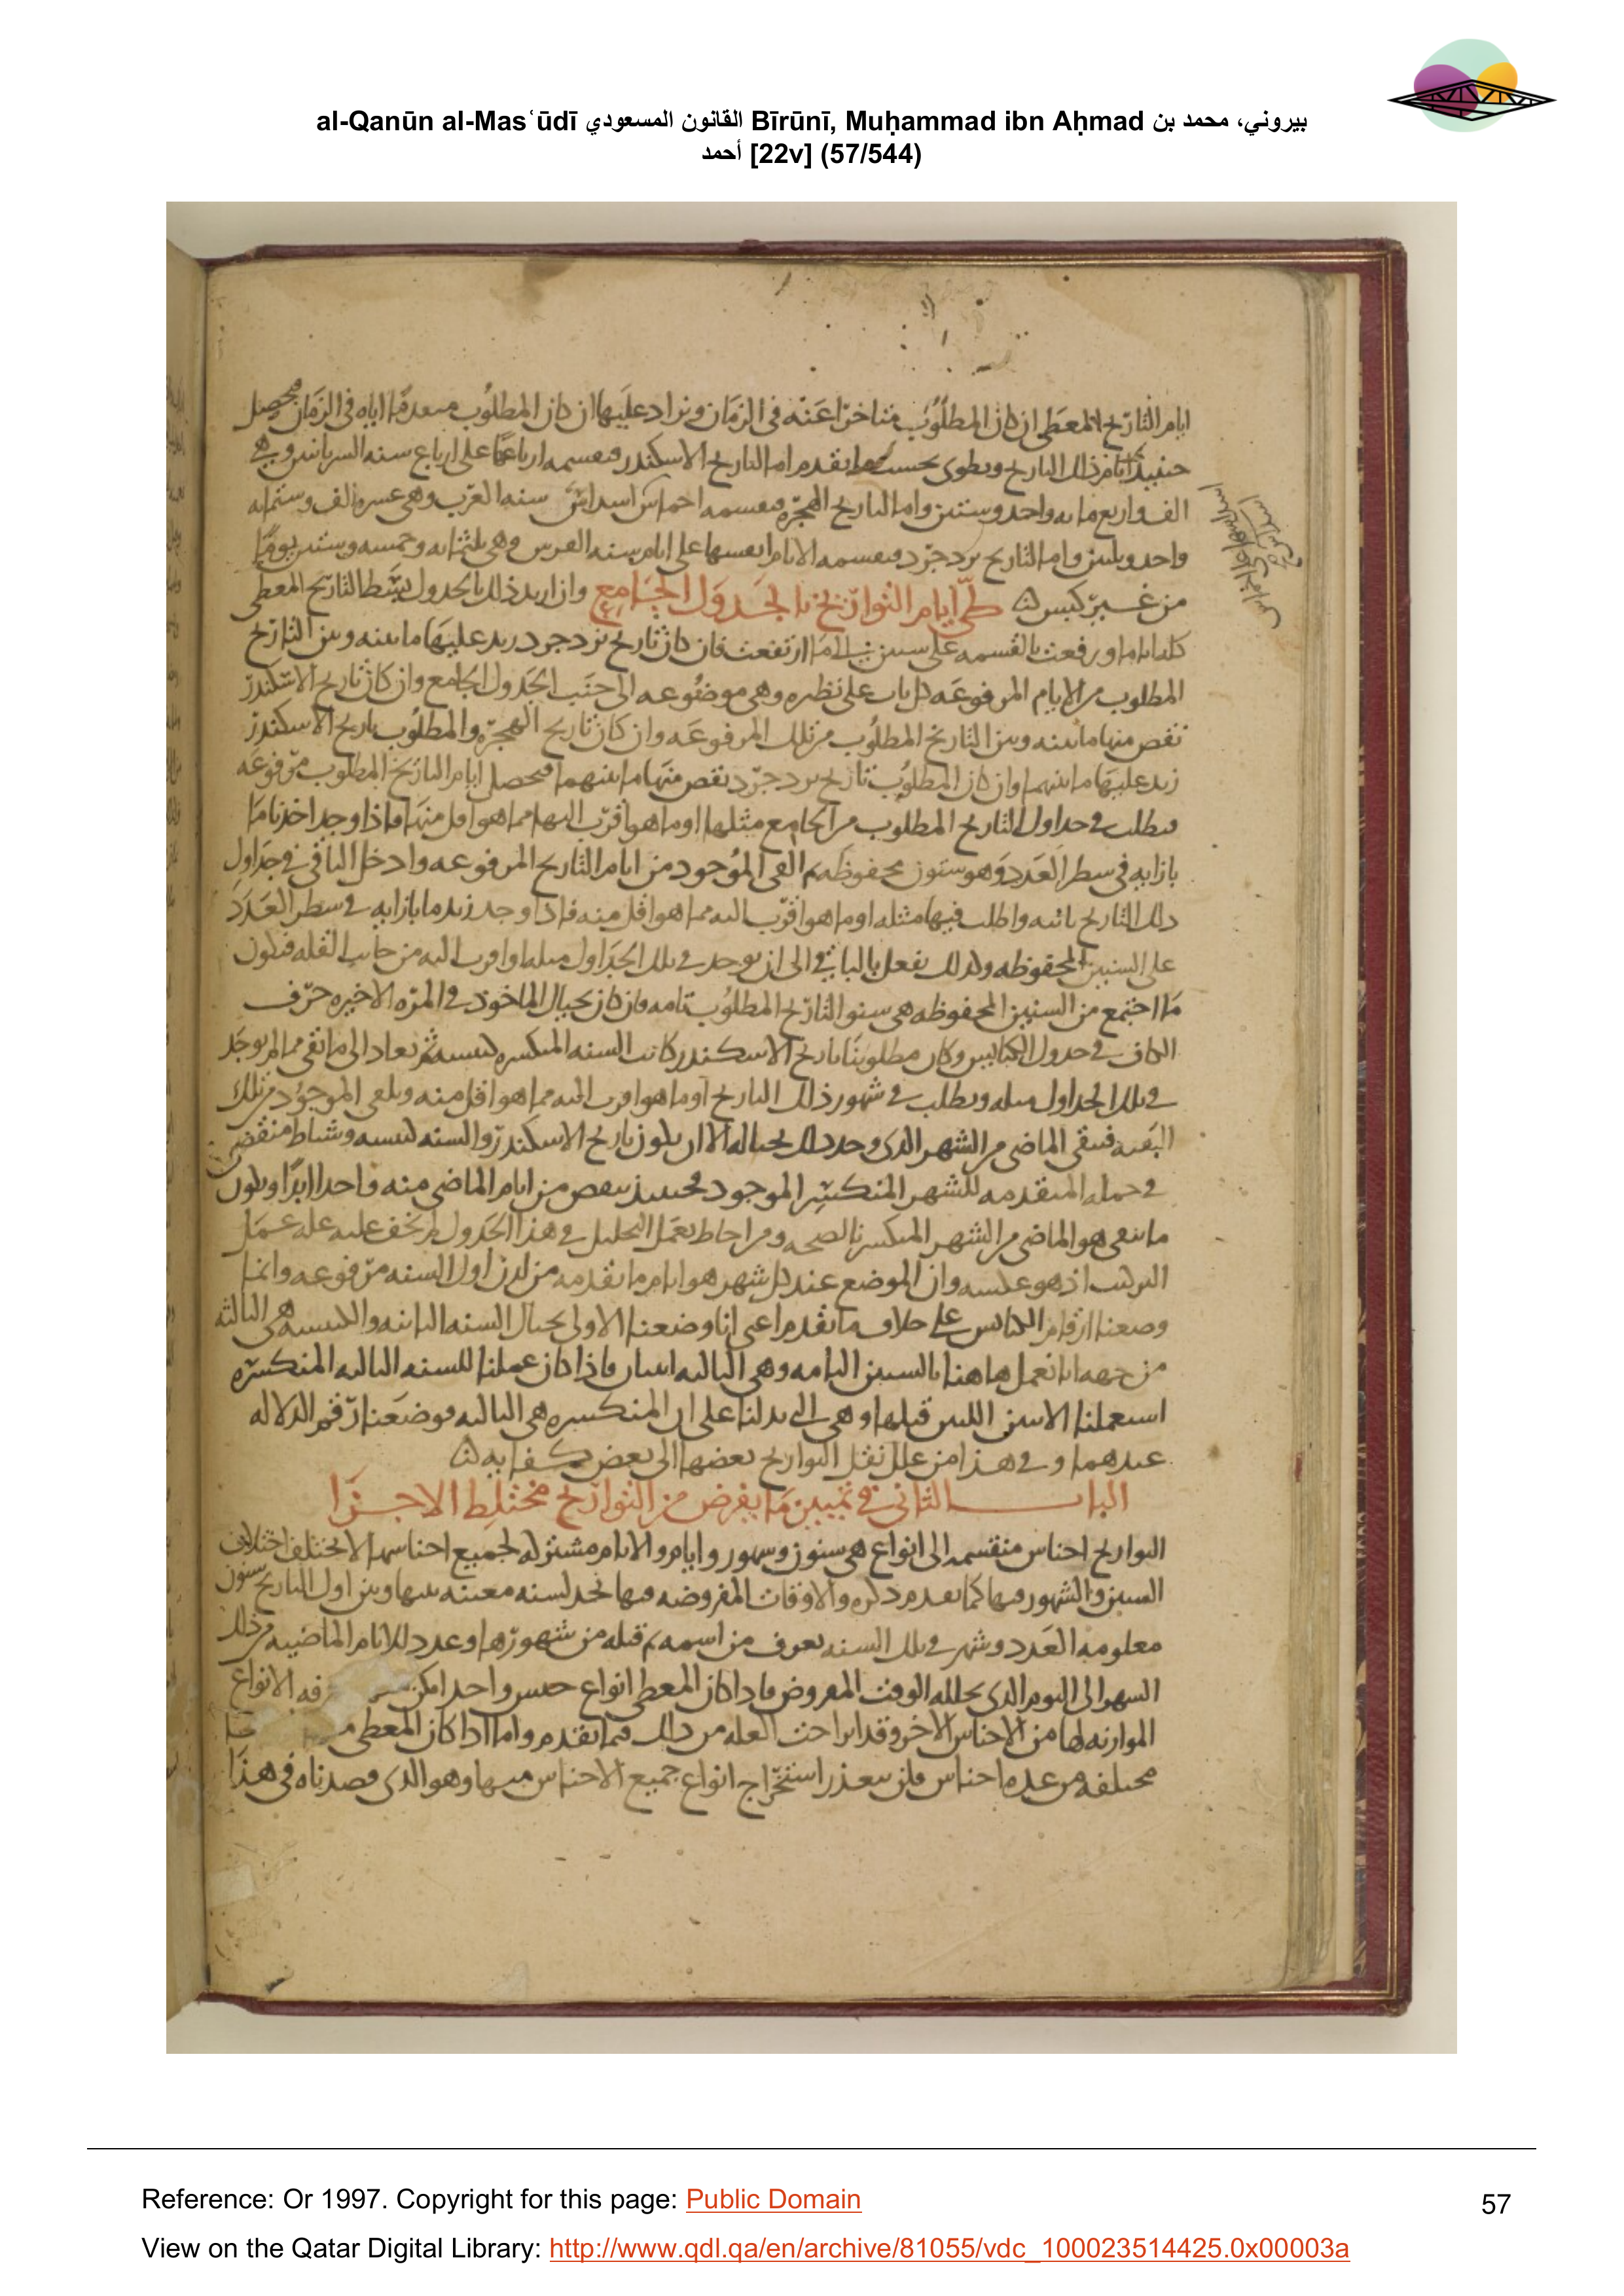 al-Qanūn al-Masʿūdī القانون المسعودي Bīrūnī, Muḥammad ibn Aḥmad بيروني، محمد بن
أحمد [22v] (57/544)
ايام التاريخ المعطى ان كان المطلوب متاخرا عنه فى الزمان ونزاد عليها ان كان المطلوب متقدما اياه فى الزمان فيحصل
حينيذ ايام ذلك التاريخ ويطوى بحسب ما تقدم اما التاريخ الاسكندر فبقسمه ارباعها على ارباع سنه السريانيين وهى
الف واربع مايه واحد وستين واما التاريخ الهجره فبقسمه اخماس اسداس سنه العرب وهى عشره الف وستمايه
واحد وثلثين واما التاريخ يزدجرد فبقسمه الايام انفسها على ايام سنه الفرس وهى ثلثمايه وخمسه وستين يوما
من غير كبس طى ايام التواريخ بالجدول الجامع وان اريد ذلك بالجدول بسط التاريخ المعطى
كله اياما ورفعت بالقسمه على ستين الى ما ارتفعت فان كان تاريخ يزدجرد زيد عليها ما بينه وبين التاريخ
المطلوب من الايام المرفوعه كل باب على نظيره وهى موضوعه الى جنب الجدول الجامع وان كان تاريخ الاسكندر
نقص منها ما بينه وبين التاريخ المطلوب من تلك المرفوعه وان كان تاريخ الهجره والمطلوب تاريخ الاسكندر
زيد عليها ما بينهما وان كان المطلوب تاريخ يزدجرد نقص منها ما بينهما فيحصل ايام التاريخ المطلوب مرفوعه
فيطلب فى جداول التاريخ المطلوب من الجامع مثلها او ما هو اقرب اليها مما هو اقل منها فاذا وجد اخذنا ما
بازايه فى سطر العدد وهو سنون محفوظه ثم القى الموجود من ايام التاريخ المرفوعه وادخل الباقى فى جداول
ذلك التاريخ ثانيه واطلب فيها مثله او ما هو اقرب اليه مما هو اقل منه فاذا وجد زيد ما بازايه فى سطر العدد
على السنين المحفوظه وكذلك يفعل بالباقى الى ان يوجد فى تلك الجداول مثله او اقرب اليه من جانب القله فيكون
ما اجتمع من السنين المحفوظه هى سنو التاريخ المطلوب تامه فان كان بحيال الماخوذ فى المره الاخيره حرف
الكاف فى جدول الكبايس وكان مطلوبنا تاريخ الاسكندر كانت السنه المنكسره كبيسه ثم نعاد الى ما بقى مما لم يوجد
فى تلك الجداول مثله ويطلب فى شهور ذلك التاريخ او ما هو اقرب اليه مما هو اقل منه ويلقى الموجود من تلك
البقيه فيبقى الماضى من الشهر الذى وجد ذلك بحياله الا ان يكون تاريخ الاسكندر والسنه كبيسه وشباط منقضى
فى جمله المتقدمه للشهر المنكسر الموجود فحينيذ ينقص من ايام الماضى منه واحدا ابدا ويكون
ما يبقى هو الماضى من الشهر المنكسر بالصحه ومن احاط بعمل التحليل فى هذا الجدول لم يخف عليه عله عمل
التركيب اذ هو عكسه وان الموضع عند كل شهر هو ايام ما تقدمه من لدن اول السنه مرفوعه وانما
وضعنا ارقام الكبايس على خلاف ما تقدم اعنى انا وضعنا الاولى بحيال السنه الثانيه والكبيسه هى الثالثه
من جهه انا نعمل هاهنا بالسنين التامه وهى الثالثه اثنان فاذا كان عملنا للسنه الثالثه المنكسره
استعملنا الاثنين اللتين قبلها وهى التى يدلنا على ان المنكسره هى الثالثه فوضعنا رقم الدلاله
عندهما وفى هذا من علل نقل التواريخ بعضها الى بعض كفايه
الباب الثانى فى تبيين ما يفرض من التواريخ مختلط الاجزا
التواريخ اجناس منقسمه الى انواع هى سنون وشهور وايام والايام مشتركه لجميع اجناسها لا تختلف اختلاف
السنين والشهور فيها كما تقدم ذكره والاوقات المفروضه فيها تحد لسنه معينه بينها وبين اول التاريخ سنون
معلومه العدد وشهر فى تلك السنه يعرف من اسمه ثم قبله من شهورها وعدد للايام الماضيه من ذلك
الشهر الى اليوم الذى يحلله الوقت المفروض فاذا كان المعطى انواع جنس واحد امكن الانواع
الموازنه لها من الاجناس الاخر وقد ازاحت العله من ذلك فيما تقدم واما اذا كان المعطى
مختلفه من عده اجناس فلن يتعذر استخراج انواع جميع الاجناس منها وهو الذى قصدناه فى هذا
Reference: Or 1997. Copyright for this page: Public Domain
57
View on the Qatar Digital Library: http://www.qdl.qa/en/archive/81055/vdc_100023514425.0x00003a